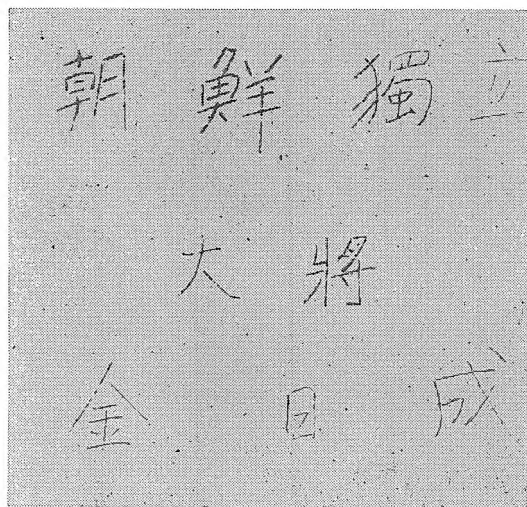 朝鮮獨立
大將
金日成